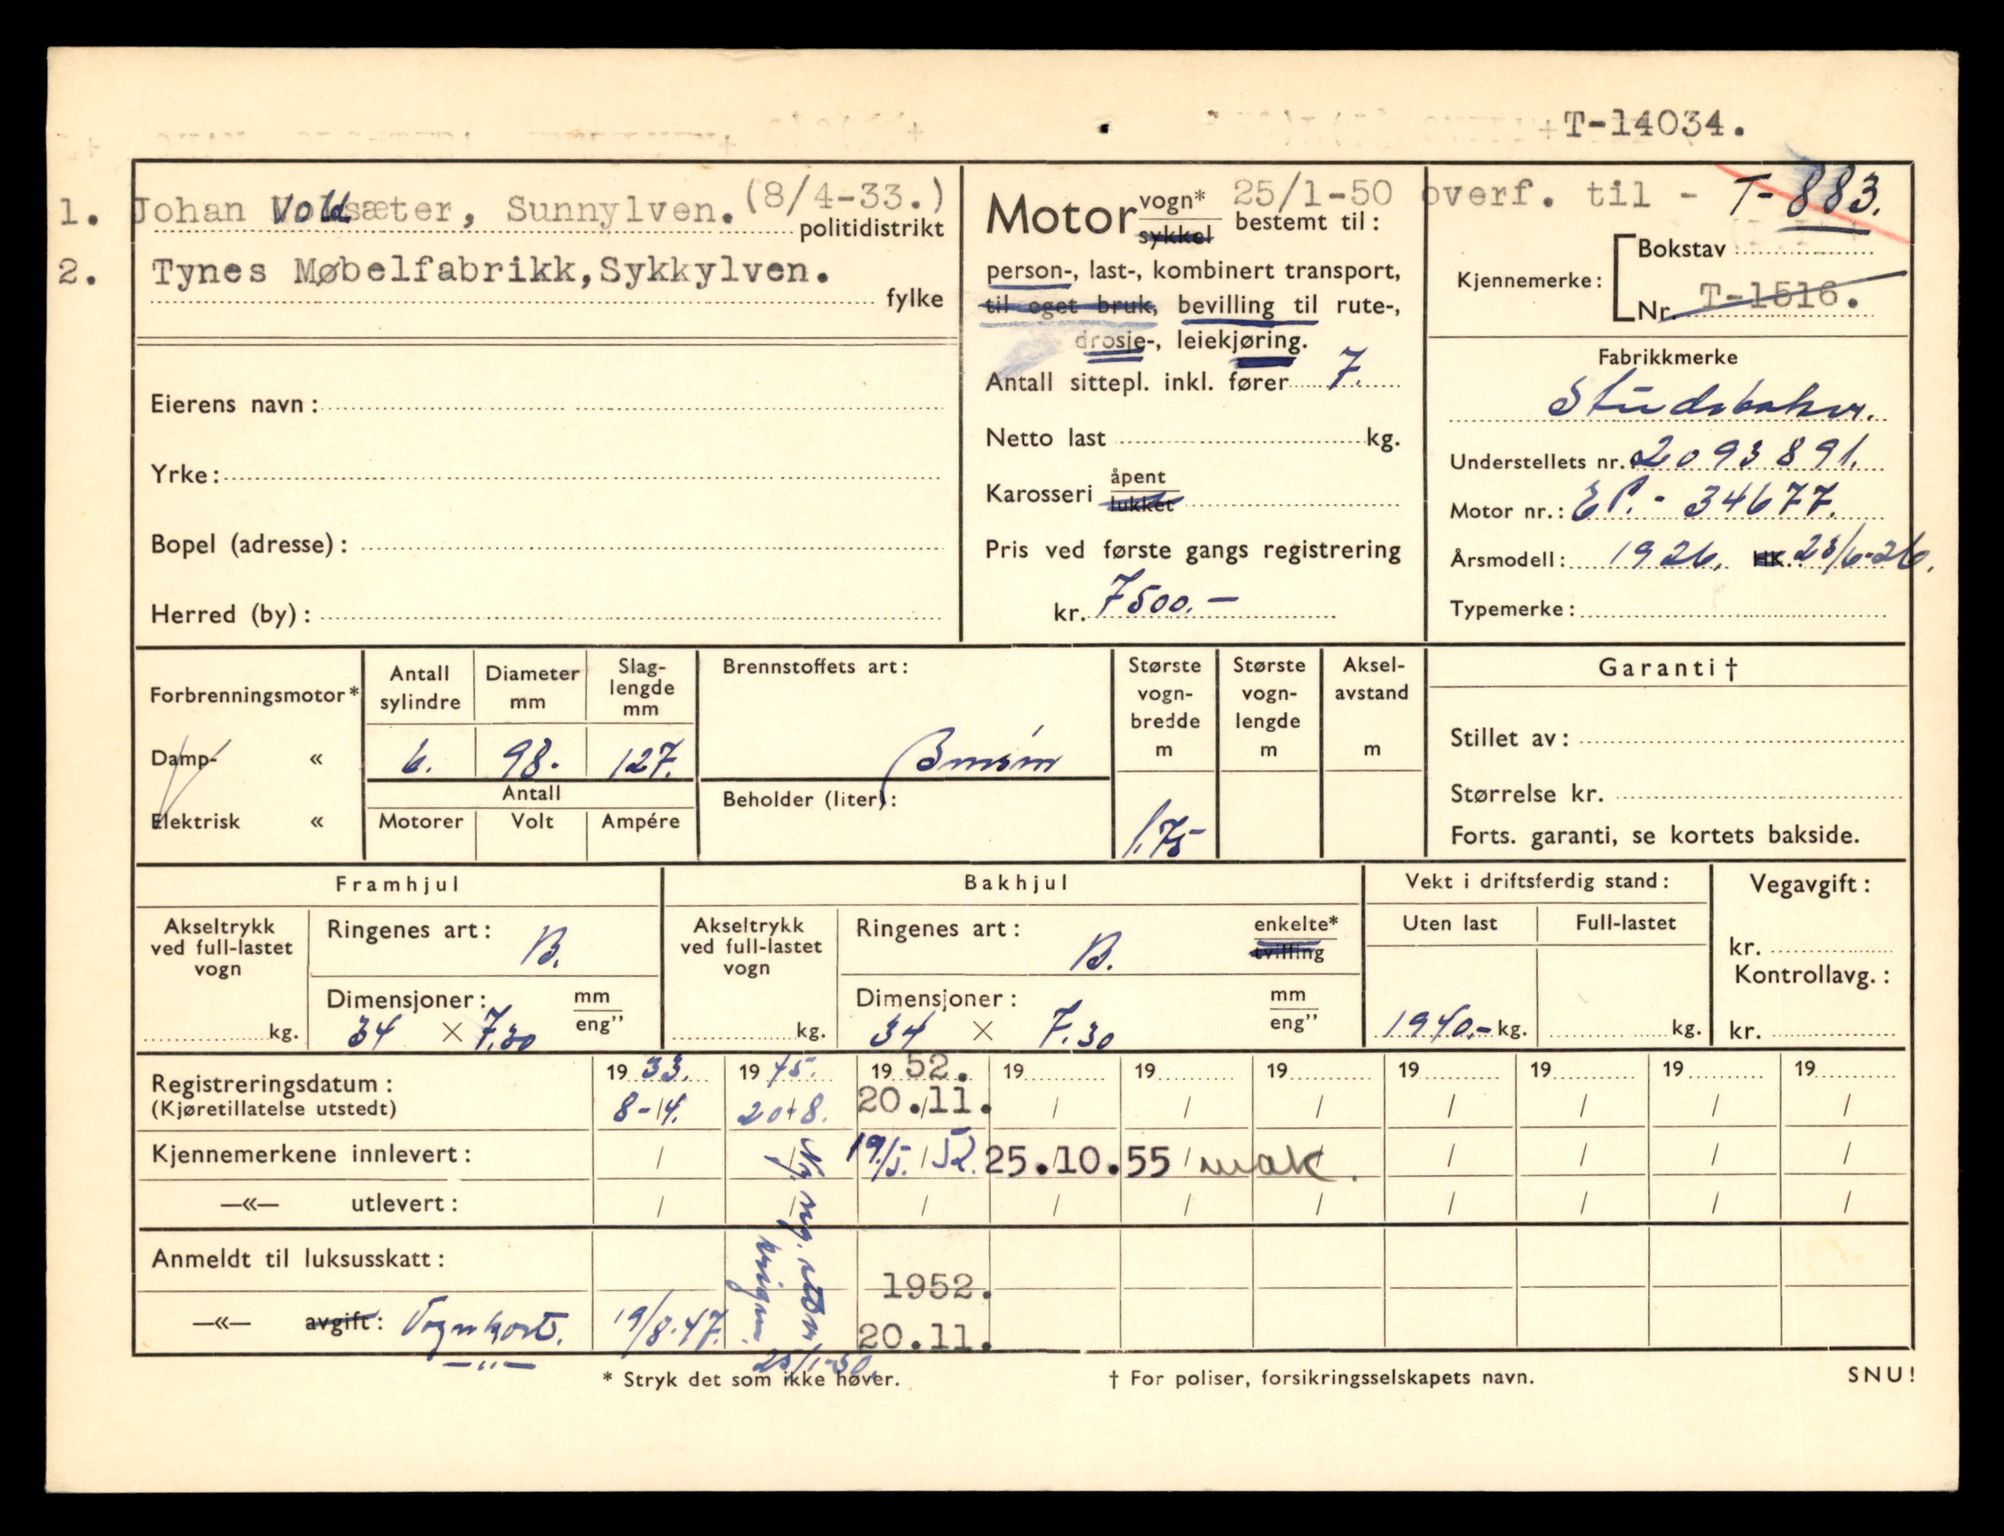 T-14034.
1. Johan Voldsæter, Sunnylven. (8/4-33.)
politidistrikt
2. Tynes Møbelfabrikk, Sykkylven.
fylke
Eierens navn:
Yrke:
Bopel (adresse):
Herred (by):
25/1-50 overf. til - T-883.
Motor vogn* sykkel bestemt til:
person-, last-, kombinert transport,
til eget bruk, bevilling til rute-,
drosje-, leiekjøring.
Antall sittepl. inkl. fører 7.
Netto last kg.
Karosseri åpent lukket
Pris ved første gangs registrering
kr. 7500.-
Kjennemerke: Bokstav
Nr. T-1516.
Fabrikkmerke
Studebaker.
Understellets nr. 2093891.
Motor nr.: EP.- 34677.
Årsmodell: 1926. HK. 23/6-26.
Typemerke:
Forbrenningsmotor*
Damp- «
Elektrisk «
Antall sylindre
Diameter mm
Slag-lengde mm
6. 98. 127.
Antall
Motorer Volt Ampére
Brennstoffets art:
Bensin
Beholder (liter):
Største vogn-bredde m
1.75
Største vogn-lengde m
Aksel-avstand m
Garanti †
Stillet av:
Størrelse kr.
Forts. garanti, se kortets bakside.
Framhjul
Akseltrykk ved full-lastet vogn
kg.
Ringenes art: B.
Dimensjoner: mm eng”
34 × 7.30
Bakhjul
Akseltrykk ved full-lastet vogn
kg.
Ringenes art: B. enkelte* tvilling
Dimensjoner: mm eng”
34 × 7.30
Vekt i driftsferdig stand:
Uten last Full-lastet
1940.- kg. kg.
Vegavgift:
kr.
Kontrollavg.:
kr.
Registreringsdatum:
(Kjøretillatelse utstedt)
19 33. 19 45. 19 52. 19 19 19 19 19 19 19
8-4. 20-8. 20.11. / / / / / / /
Kjennemerkene innlevert: / / 19/5. 52. 25.10.55 mak. / / / /
—«— utlevert: / / / / / / / / / /
Anmeldt til luksusskatt: 1952.
—«— avgift: Vognkort. 19/8.47. 20.11.
—"—
Ny reg. etter krigen.
25/1-50.
* Stryk det som ikke høver.
† For poliser, forsikringsselskapets navn.
SNU!